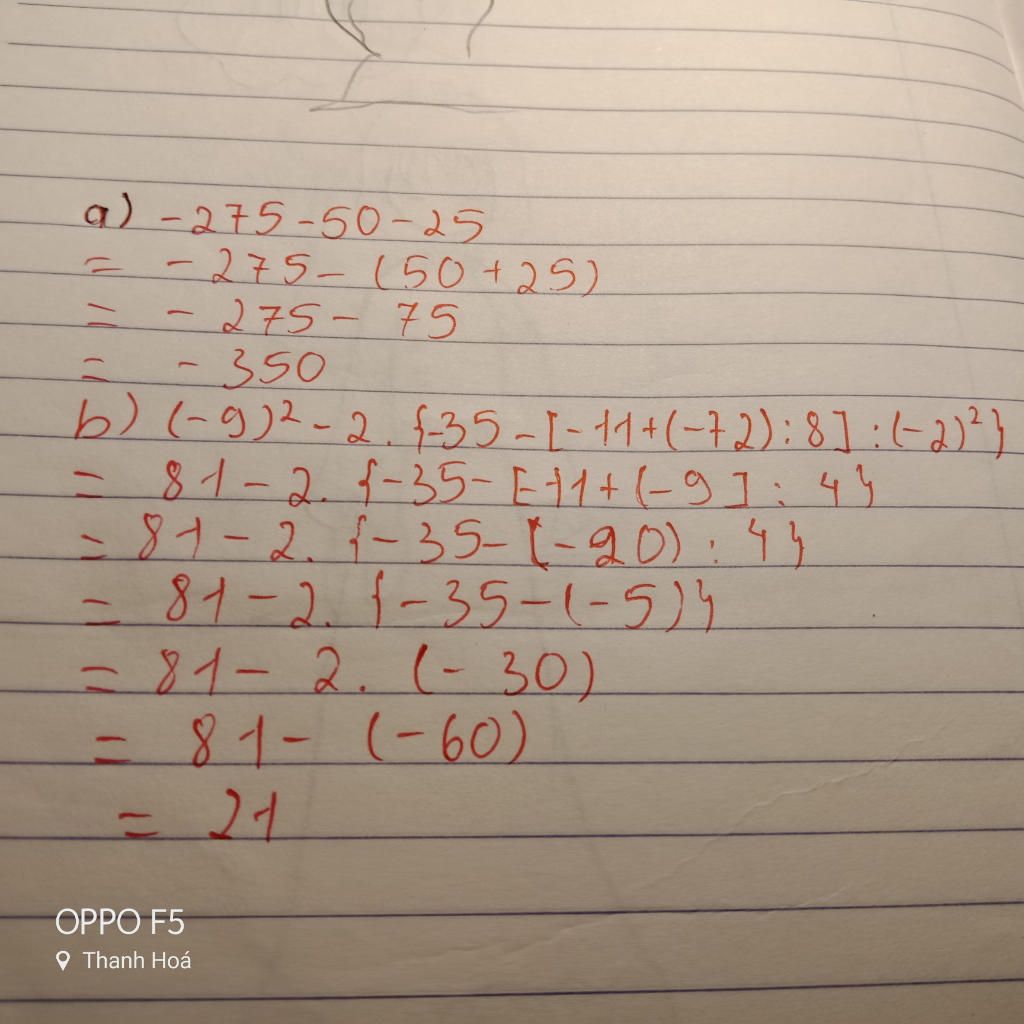 a) -275-50-25
= -275-(50+25)
= -275-75
= -350
b) (-9)²-2.{-35-[-11+(-72):8]:(-2)²}
= 81-2.{-35-[-11+(-9]:4}
= 81-2.{-35-[-20):4}
= 81-2.{-35-(-5)}
= 81-2.(-30)
= 81-(-60)
= 21
OPPO F5
Thanh Hoá